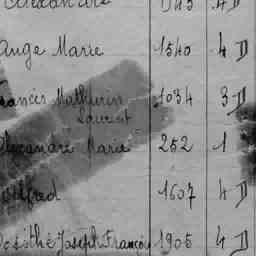 Alexandre 1545 4 D
Ange Marie 1540 4 D
Mathurin 1034 3 D
Laurent
Alexandre Marie 252 1
Wilfred 1607 4 D
Dosithé Joseph François 1905 4 D